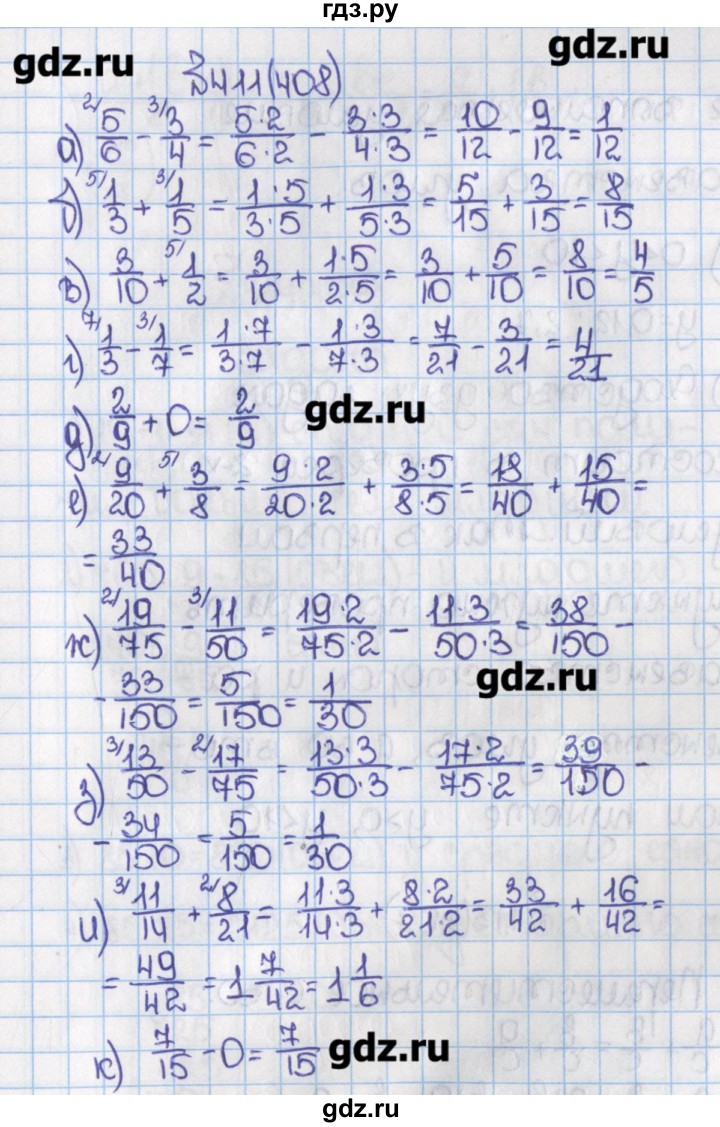 гдз.ру
gdz.ru
gdz.ru
№411(408)
а) ²⁾5/6 - ³⁾3/4 = 5·2/6·2 - 3·3/4·3 = 10/12 - 9/12 = 1/12
б) ⁵⁾1/3 + ³⁾1/5 = 1·5/3·5 + 1·3/5·3 = 5/15 + 3/15 = 8/15
в) 3/10 + ⁵⁾1/2 = 3/10 + 1·5/2·5 = 3/10 + 5/10 = 8/10 = 4/5
г) ⁷⁾1/3 - ³⁾1/7 = 1·7/3·7 - 1·3/7·3 = 7/21 - 3/21 = 4/21
д) 2/9 + 0 = 2/9
gdz.ru
е) ²⁾9/20 + ⁵⁾3/8 = 9·2/20·2 + 3·5/8·5 = 18/40 + 15/40 =
= 33/40
ж) ²⁾19/75 - ³⁾11/50 = 19·2/75·2 - 11·3/50·3 = 38/150 -
- 33/150 = 5/150 = 1/30
gdz.ru
з) ³⁾13/50 - ²⁾17/75 = 13·3/50·3 - 17·2/75·2 = 39/150 -
- 34/150 = 5/150 = 1/30
и) ³⁾11/14 + ²⁾8/21 = 11·3/14·3 + 8·2/21·2 = 33/42 + 16/42 =
= 49/42 = 1 7/42 = 1 1/6
к) 7/15 - 0 = 7/15
gdz.ru
gdz.ru